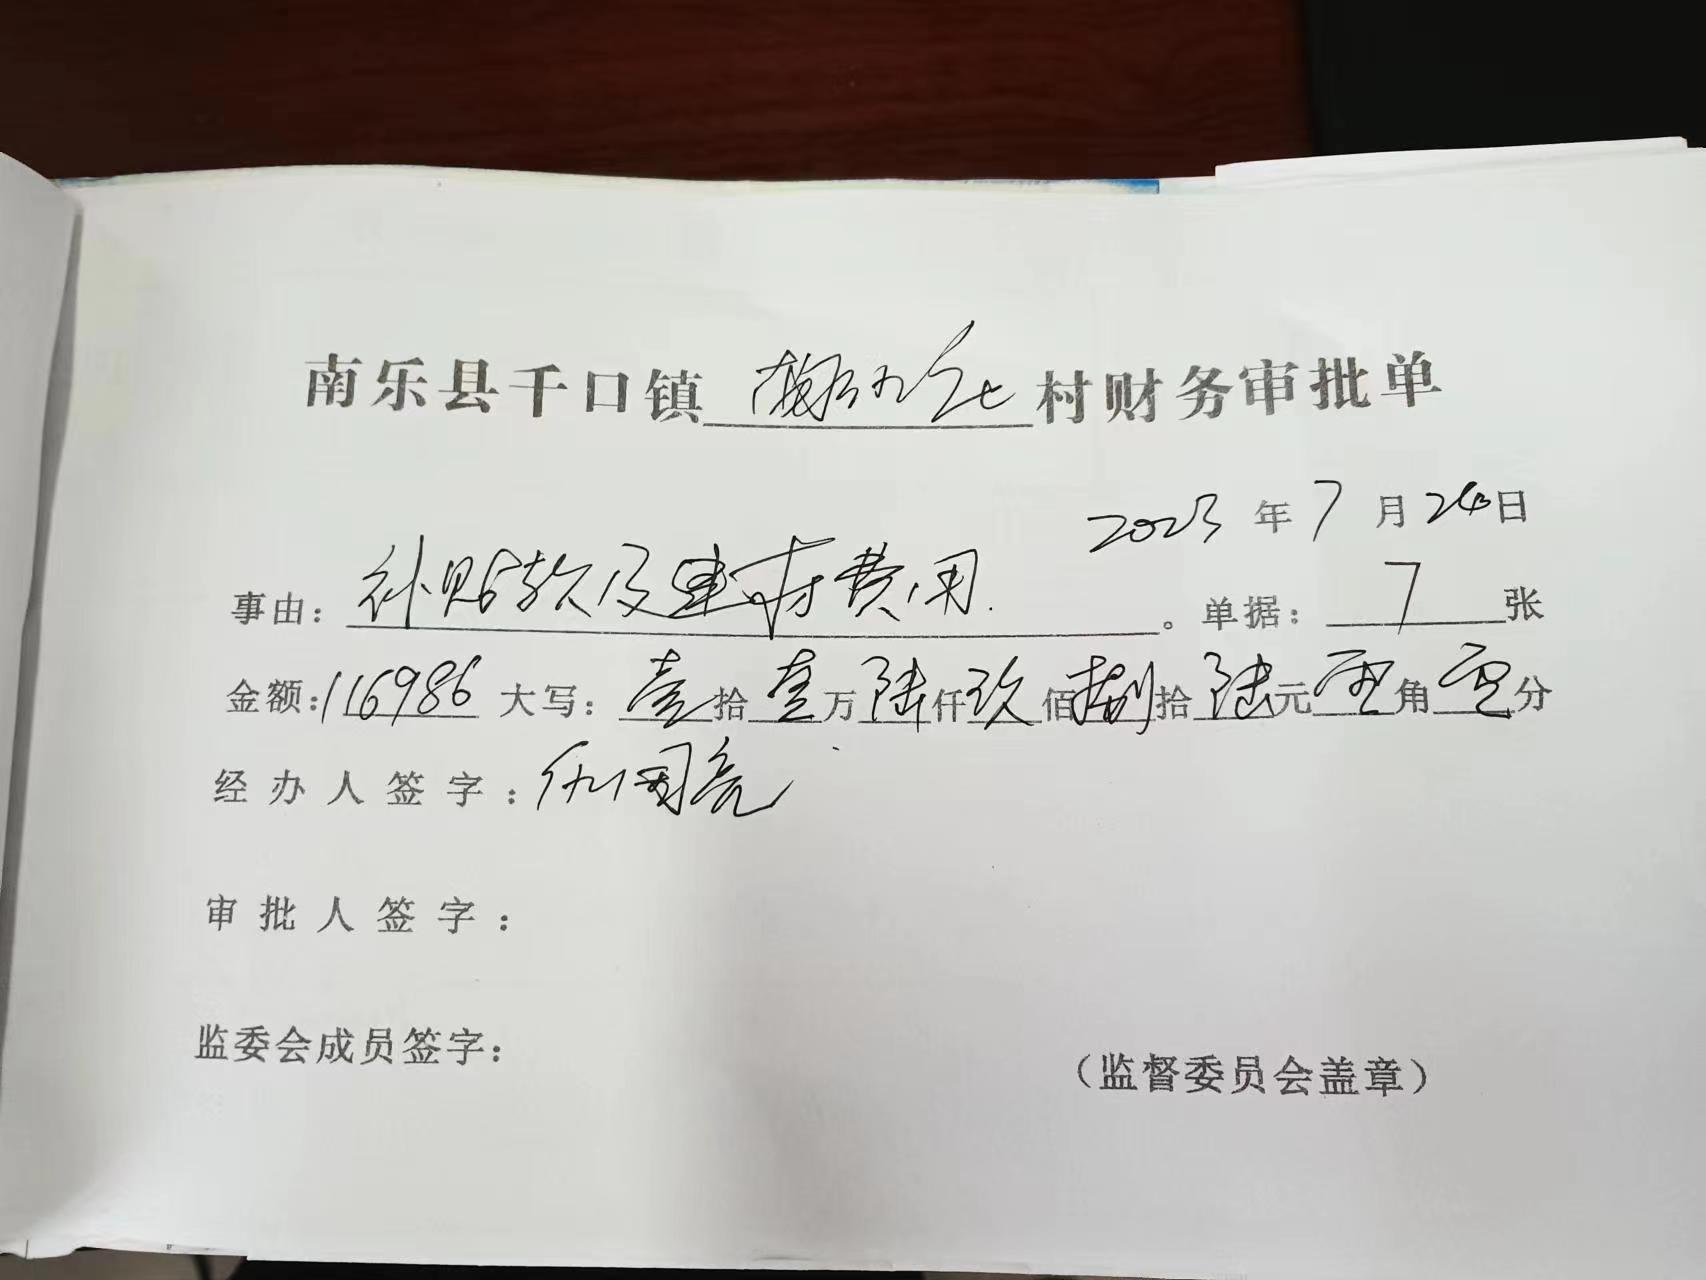 南乐县千口镇村财务审批单
2023年7月24日
事由：补贴款及建房费用。单据：7张
金额：116986大写：壹拾壹万陆仟玖佰捌拾陆元零角零分
经办人签字：仇国亮
审批人签字：
监委会成员签字：
（监督委员会盖章）